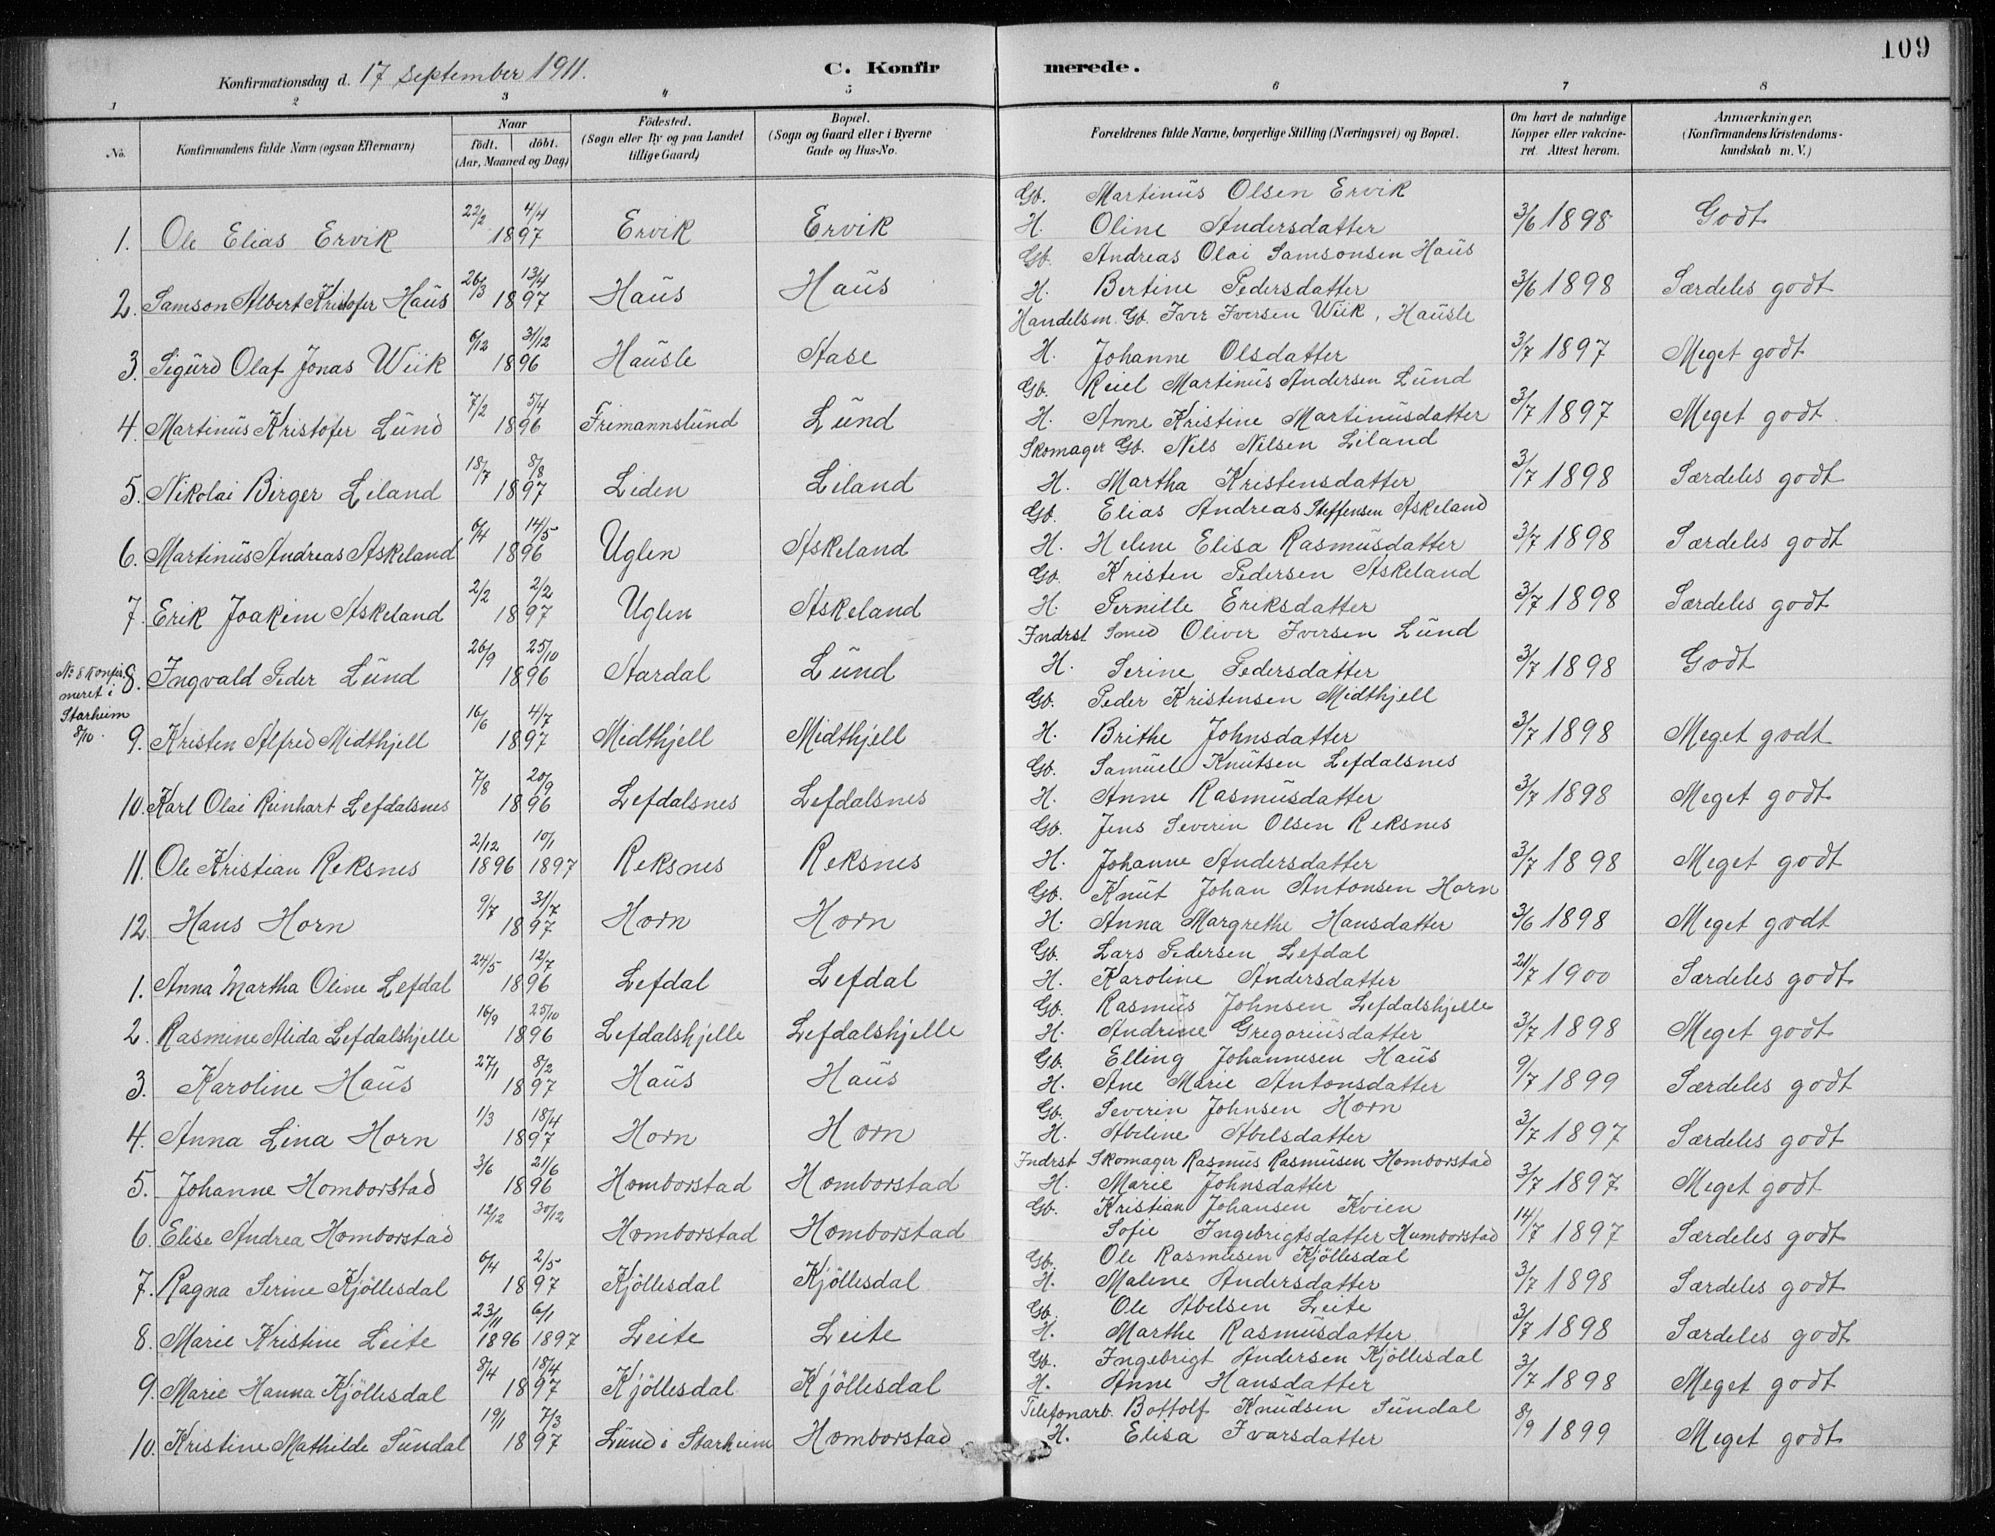 109
Konfirmationsdag d. 17 september 1911.
C. Konfirmerede.
1 2 3 4 5 6 7 8
No. Konfirmandens fulde Navn (ogsaa Efternavn) Naar födt. döbt. (Aar, Maaned og Dag) Födested. (Sogn eller By og paa Landet tillige Gaard) Bopæl. (Sogn og Gaard eller i Byerne Gade og Hus-No. Forældrenes fulde Navne, borgerlige Stilling (Næringsvei) og Bopæl. Om havt de naturlige Kopper eller vakcineret. Attest herom. Anmærkninger. (Konfirmandens Kristendomskundskab m. V.)
Gb. Martinus Olsen Ervik
1. Ole Elias Ervik 22/2 4/4 1897 Ervik Ervik H. Oline Andersdatter 3/6 1898 Godt
Gb. Andreas Olai Samsonsen Haus
2. Samson Albert Kristofer Haus 26/3 13/4 1897 Haus Haus H. Bertine Pedersdatter 3/6 1898 Særdeles godt
Handelsm. Gb. Iver Iversen Wiik, Hausle
3. Sigurd Olaf Jonas Wiik 6/12 31/12 1896 Hausle Aase H. Johanne Olsdatter 3/7 1897 Meget godt
Gb. Reiel Martinus Andersen Lund
4. Martinus Kristofer Lund 7/2 5/4 1896 Frimannslund Lund H. Anne Kristine Martinusdatter 3/7 1897 Meget godt
Skomager Gb. Nils Nilsen Leland
5. Nikolai Birger Leland 18/7 8/8 1897 Leiden Leland H. Martha Kristensdatter 3/7 1898 Særdeles godt
Gb. Elias Andreas Steffensen Askeland
6. Martinus Andreas Askeland 6/4 14/5 1896 Uglen Askeland H. Helene Elisa Rasmusdatter 3/7 1898 Særdeles godt
Gb. Kristen Pedersen Askeland
7. Erik Joakim Askeland 2/2 2/2 1897 Uglen Askeland H. Pernille Eriksdatter 3/7 1898 Særdeles godt
Indrst Smed Oliver Iversen Lund
No 8 Konfirmeret i Starheim 8/10.
8. Ingvald Peder Lund 26/9 25/10 1896 Aardal Lund H. Serine Pedersdatter 3/7 1898 Godt
Gb. Peder Kristensen Midthjell
9. Kristen Alfred Midthjell 16/6 4/7 1897 Midthjell Midthjell H. Brithe Johnsdatter 3/7 1898 Meget godt
Gb. Samuel Knutsen Lefdalsnes
10. Karl Olai Reinhart Lefdalsnes 7/8 20/9 1896 Lefdalsnes Lefdalsnes H. Anne Rasmusdatter 3/7 1898 Meget godt
Gb. Jens Severin Olsen Reksnes
11. Ole Kristian Reksnes 2/12 1896 10/1 1897 Reksnes Reksnes H. Johanne Andersdatter 3/7 1898 Meget godt
Gb. Knut Johan Antonsen Horn
12. Hans Horn 9/7 31/7 1897 Horn Horn H. Anna Margrethe Hansdatter 3/6 1898 Meget godt
Gb. Lars Pedersen Lefdal
1. Anna Martha Oline Lefdal 24/5 12/7 1896 Lefdal Lefdal H. Karoline Andersdatter 21/7 1900 Særdeles godt
Gb. Rasmus Johnsen Lefdalshjelle
2. Rasmine Alida Lefdalshjelle 16/9 25/10 1896 Lefdalshjelle Lefdalshjelle H. Andrine Gregoriusdatter 3/7 1898 Meget godt
Gb. Elling Johannesen Haus
3. Karoline Haus 27/1 8/2 1897 Haus Haus H. Ane Marie Antonsdatter 9/7 1899 Særdeles godt
Gb. Severin Johnsen Horn
4. Anna Lina Horn 1/3 18/4 1897 Horn Horn H. Abeline Abelsdatter 3/7 1897 Særdeles godt
Indrst Skomager Rasmus Rasmusen Homborstad
5. Johanne Homborstad 3/6 21/6 1896 Homborstad Homborstad H. Marie Johnsdatter 3/7 1897 Meget godt
Gb. Kristian Johansen Kvien
6. Elise Andrea Homborstad 12/12 30/12 Homborstad Homborstad Sofie Ingebrigtsdatter Humborstad 14/7 1897 Særdeles godt
Gb. Ole Rasmusen Kjöllesdal
7. Ragna Serine Kjöllesdal 6/4 2/5 1897 Kjöllesdal Kjöllesdal H. Malene Andersdatter 3/7 1898 Særdeles godt
Gb. Ole Abelsen Leite
8. Marie Kristine Leite 23/11 1896 6/1 1897 Leite Leite H. Marthe Rasmusdatter 3/7 1898 Særdeles godt
Gb. Ingebrigt Andersen Kjöllesdal
9. Marie Hanna Kjöllesdal 8/4 18/4 1897 Kjöllesdal Kjöllesdal H. Anne Hansdatter 3/7 1898 Meget godt
Telefonarb. Bottolf Knudsen Sundal
10. Kristine Mathilde Sundal 19/1 7/3 1897 Lund i Starheim Homborstad H. Elisa Ivarsdatter 8/9 1899 Meget godt